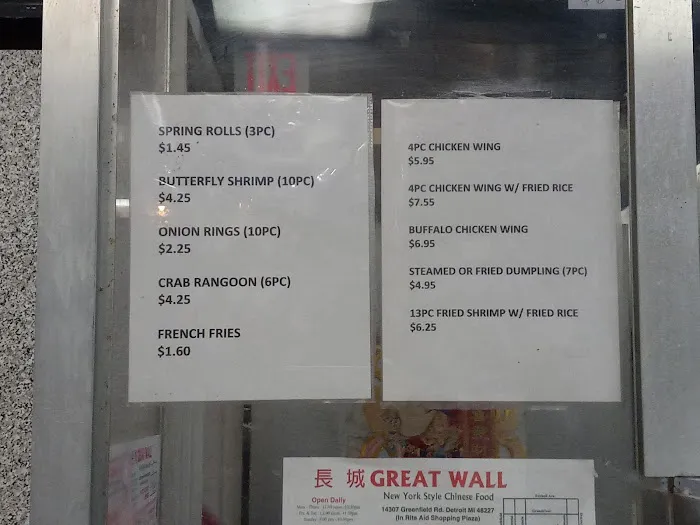 SPRING ROLLS (3PC)
$1.45
BUTTERFLY SHRIMP (10PC)
$4.25
ONION RINGS (10PC)
$2.25
CRAB RANGOON (6PC)
$4.25
FRENCH FRIES
$1.60
4PC CHICKEN WING
$5.95
4PC CHICKEN WING W/ FRIED RICE
$7.55
BUFFALO CHICKEN WING
$6.95
STEAMED OR FRIED DUMPLING (7PC)
$4.95
13PC FRIED SHRIMP W/ FRIED RICE
$6.25
長城 GREAT WALL
New York Style Chinese Food
Open Daily
14307 Greenfield Rd. Detroit MI 48227
(In Rite Aid Shopping Plaza)